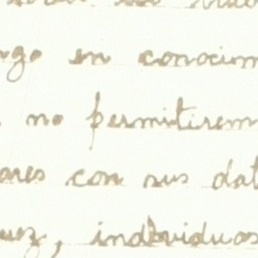 ngo en conocim
no permitirem
ares con sus dat
uez, individuos